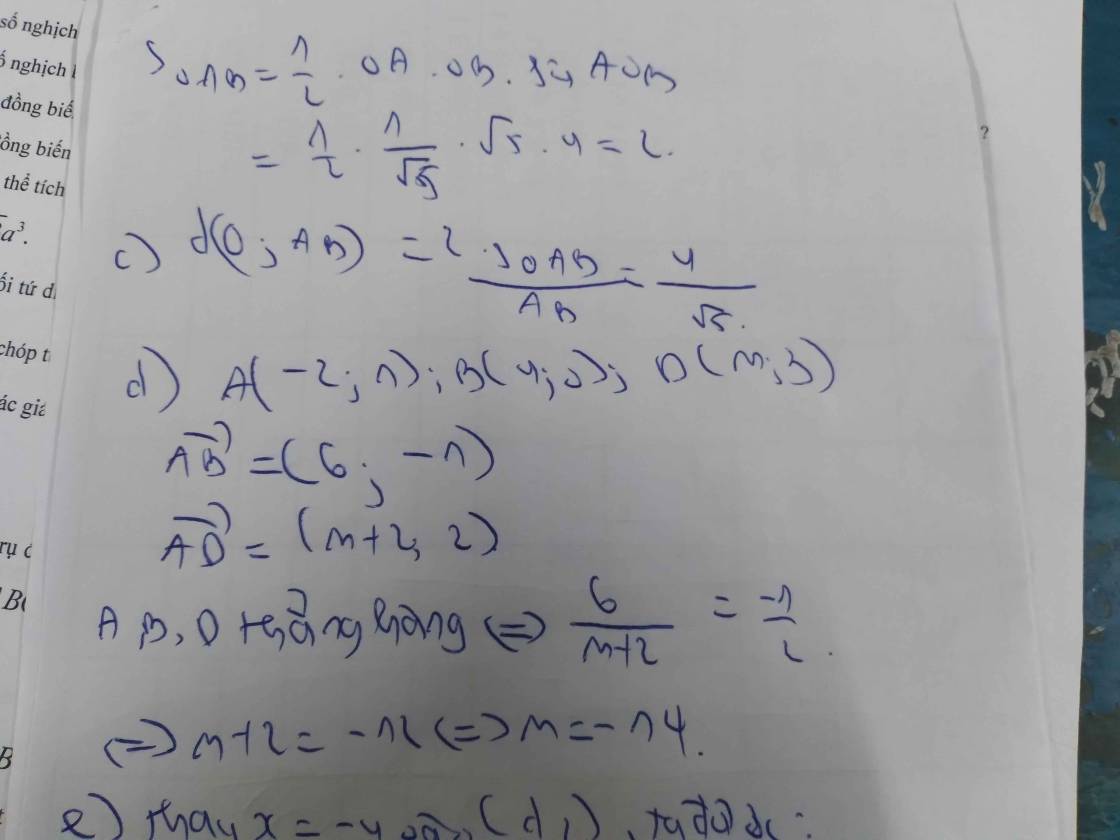 số nghịch
ố nghịch
đồng biế
ồng biến
thể tích
a³.
ối tứ d
chóp t
ác giá
rụ
B
B
?
S OAB = 1/2 . OA . OB . sin AOB
= 1/2 . 1/√5 . √5 . 4 = 2.
c) d(O; AB) = 2.S OAB / AB = 4/√5.
d) A(-2; 1); B(4; 0); D(m; 3)
AB = (6; -1)
AD = (m+2; 2)
A, B, D thẳng hàng <=> 6/(m+2) = -1/2.
<=> m+2 = -12 <=> m = -14.
e) thay x = -4 vào (d₁), ta được: